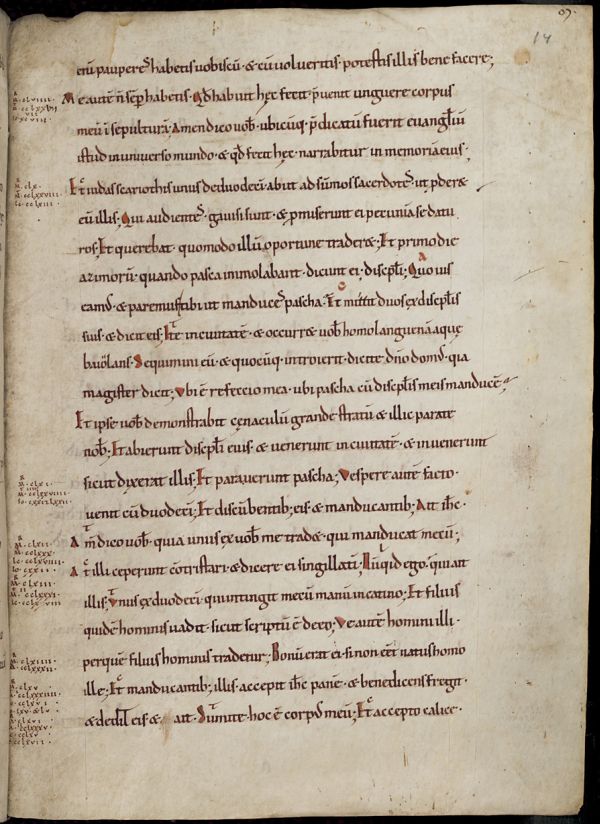 enī pauperes habetis uobiscū · & cū uolueritis · potestis illis bene facere;
Me autē n̄ semp̄ habetis · Qd habuit hec fecit · p̄uenit unguere corpus
meū ī sepulturā; Amen dico uob̄ · ubicūq; p̄dicatū fuerit euangl̄iū
istud in uniuerso mundo · & qd fecit hęc · narrabitur in memoriā eius ·
Et iudas scariothis unus de duodecī · abiit ad sūmos sacerdotes · ut p̄der&
eū illis; Qui audientes · gauisi sunt · & promiserunt ei pecuniā se datu
ros; Et querebat · quomodo illū oportune trader&; Et primo die
azimorū · quando pasca immolabant · dicunt ei · discipl̄i; Quo uis
eam' · & paremus tibi ut manduces pascha · Et mittit duos ex discipl̄is
suis · & dicit eis; Ite in ciuitatē · & occurr& uob̄ homo languenā aquę
baiolans · Sequimini eū · & quocūq; introierit · dicite dn̄o dom' · quia
magister dicit; Vbi ē refeccio mea · ubi pascha cū discipl̄is meis manducē ·
Et ipse uob̄ demonstrabit cenaculū grande stratū · & illic parate
nob̄; Et abierunt discipl̄i eius · & uenerunt in ciuitatē · & inuenerunt
sicut dixerat illis; Et parauerunt pascha; Vespere autē facto ·
uenit cū duodecī; Et discūbentib; eis · & manducantib; Ait ih̄c ·
Am̄ dico uob̄ · quia unus ex uob̄ me trad& · qui manducat mecū;
At illi ceperunt cōtristari · & dicere ei singillatī; Nūquid ego · qui ait
illis; Vnus ex duodecī · qui intingit mecū manū in catino; Et filius
quidē hominis uadit · sicut scriptū ē de eo; Ve autē homini illi ·
per quē filius hominis tradetur; Bonū erat ei · si non eēt natus homo
ille; Et manducantib; illis · accepit ih̄c panē · & benedicens fregit ·
& dedit eis & ait · Sumite · hoc ē corpus meū; Et accepto calice ·